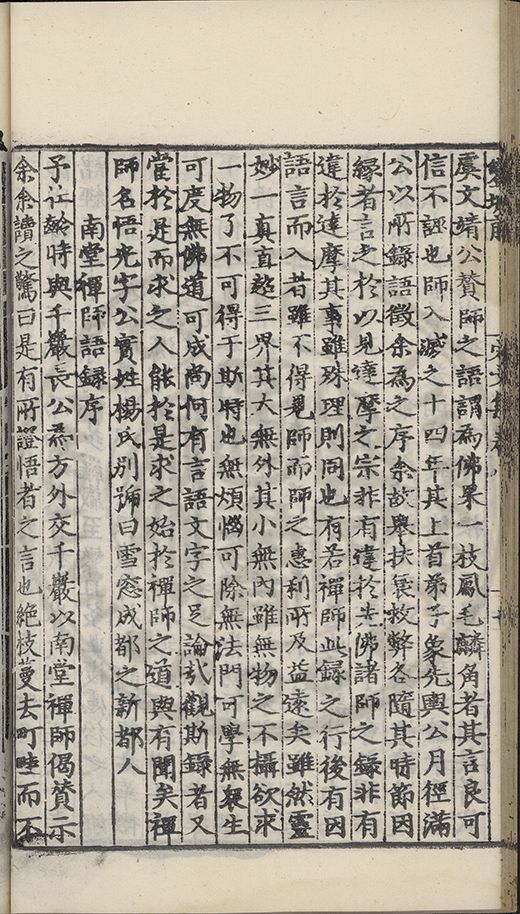 虞文靖公贊師之語謂為佛果一枝鳳毛麟角者其言良可
信不誣也師入滅之十四年其上首弟子象先輿公月徑滿
公以所錄語徵余為之序余故舉扶衰救弊各隨其時節因
緣者言之於以見達摩之宗非有違於先佛諸師之錄非有
違於達摩其事雖殊理則同也有若禪師此錄之行後有因
語言而入者雖不得見師而師之惠利所及益遠矣雖然靈
妙一真直超三界其大無外其小無內雖無物之不攝欲求
一物了不可得于斯時也無煩惱可除無法門可學無眾生
可度無佛道可成尚何有言語文字之足論哉觀斯錄者又
當於是而求之人能於是求之始於禪師之道與有聞矣禪
師名悟光字公實姓楊氏別號曰雪窓成都之新都人
南堂禪師語錄序
予壯齡時與千巖長公為方外交千巖以南堂禪師偈贊示
余余讀之驚曰是有所證悟者之言也絕枝蔓去町畦而不